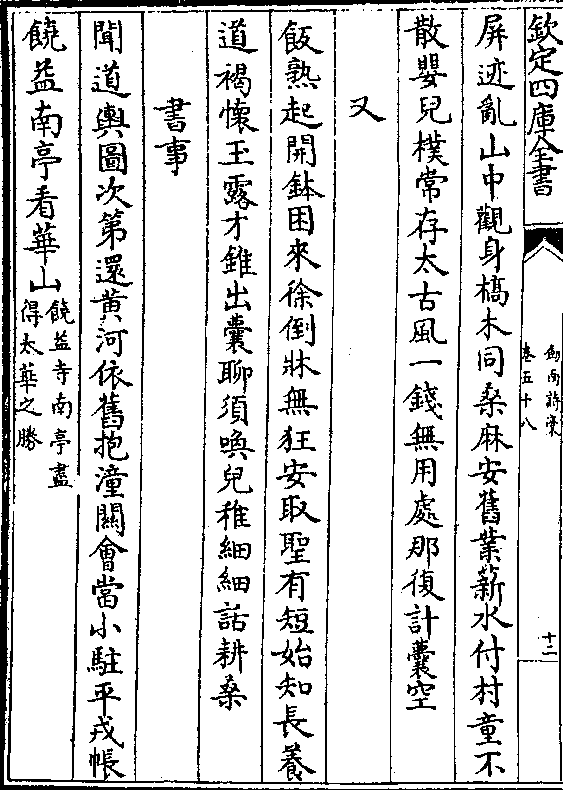 欽定四庫全書
劍南詩稾
卷五十八
十二
屏迹亂山中觀身槁木同桑麻安舊業薪水付村童不
散嬰兒樸常存太古風一錢無用處那復計囊空
又
飯熟起開鉢困來徐倒牀無狂安取聖有短始知長養
道褐懷玉露才錐出囊聊須喚兒稚細細話耕桑
書事
聞道輿圖次第還黄河依舊抱潼關會當小駐平戎帳
饒益南亭看華山饒益寺南亭盡
得太華之勝